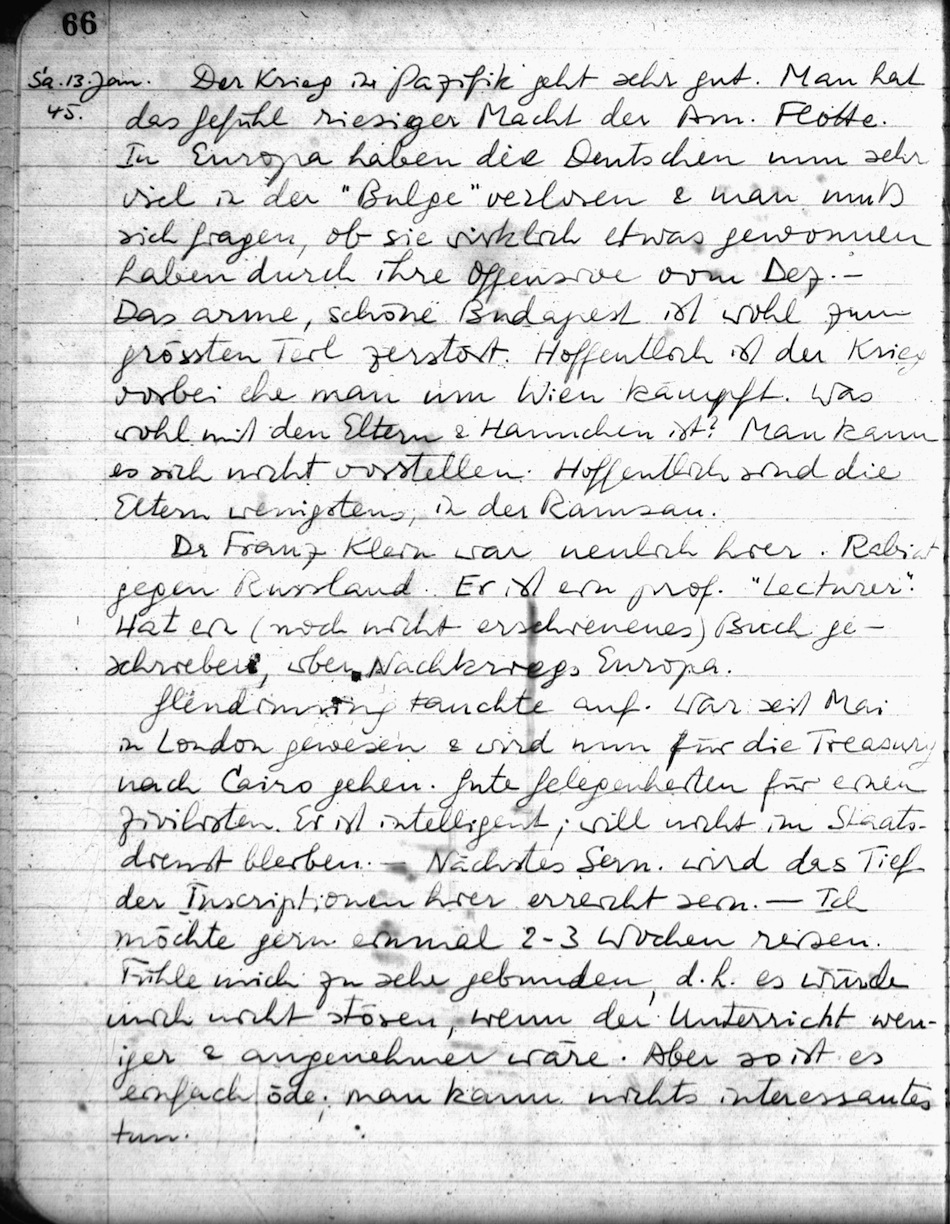 66
Sa. 13. Jan. Der Krieg im Pazifik geht sehr gut. Man hat
45. das Gefühl riesiger Macht der Am. Flotte.
In Europa haben die Deutschen nun sehr
viel in der "Bulge" verloren & man muß
sich fragen, ob sie wirklich etwas gewonnen
haben durch ihre Offensive vom Dez. –
Das arme, schöne Budapest ist wohl zum
grössten Teil zerstört. Hoffentlich ist der Krieg
vorbei ehe man um Wien kämpft. Was
wohl mit den Eltern & Hannchen ist? Man kann
es sich nicht vorstellen. Hoffentlich sind die
Eltern wenigstens, in der Ramsau.
Dr Franz Klein war neulich hier. Rabiat
gegen Russland. Er ist ein prof. "Lecturer".
Hat ein (noch nicht erschienenes) Buch ge-
schrieben, über Nachkriegs Europa.
Glendinning tauchte auf. War seit Mai
in London gewesen & wird nun für die Treasury
nach Cairo gehen. Gute Gelegenheiten für einen
Zivilisten. Er ist intelligent; will nicht im Staats-
dienst bleiben. – Nächstes Sem. wird das Tief
der Inscriptionen hier erreicht sein. – Ich
möchte gern einmal 2-3 Wochen reisen.
Fühle mich zu sehr gebunden, d.h. es würde
mich nicht stören, wenn der Unterricht wen-
iger & angenehmer wäre. Aber so ist es
einfach öde; man kann nichts interessantes
tun.